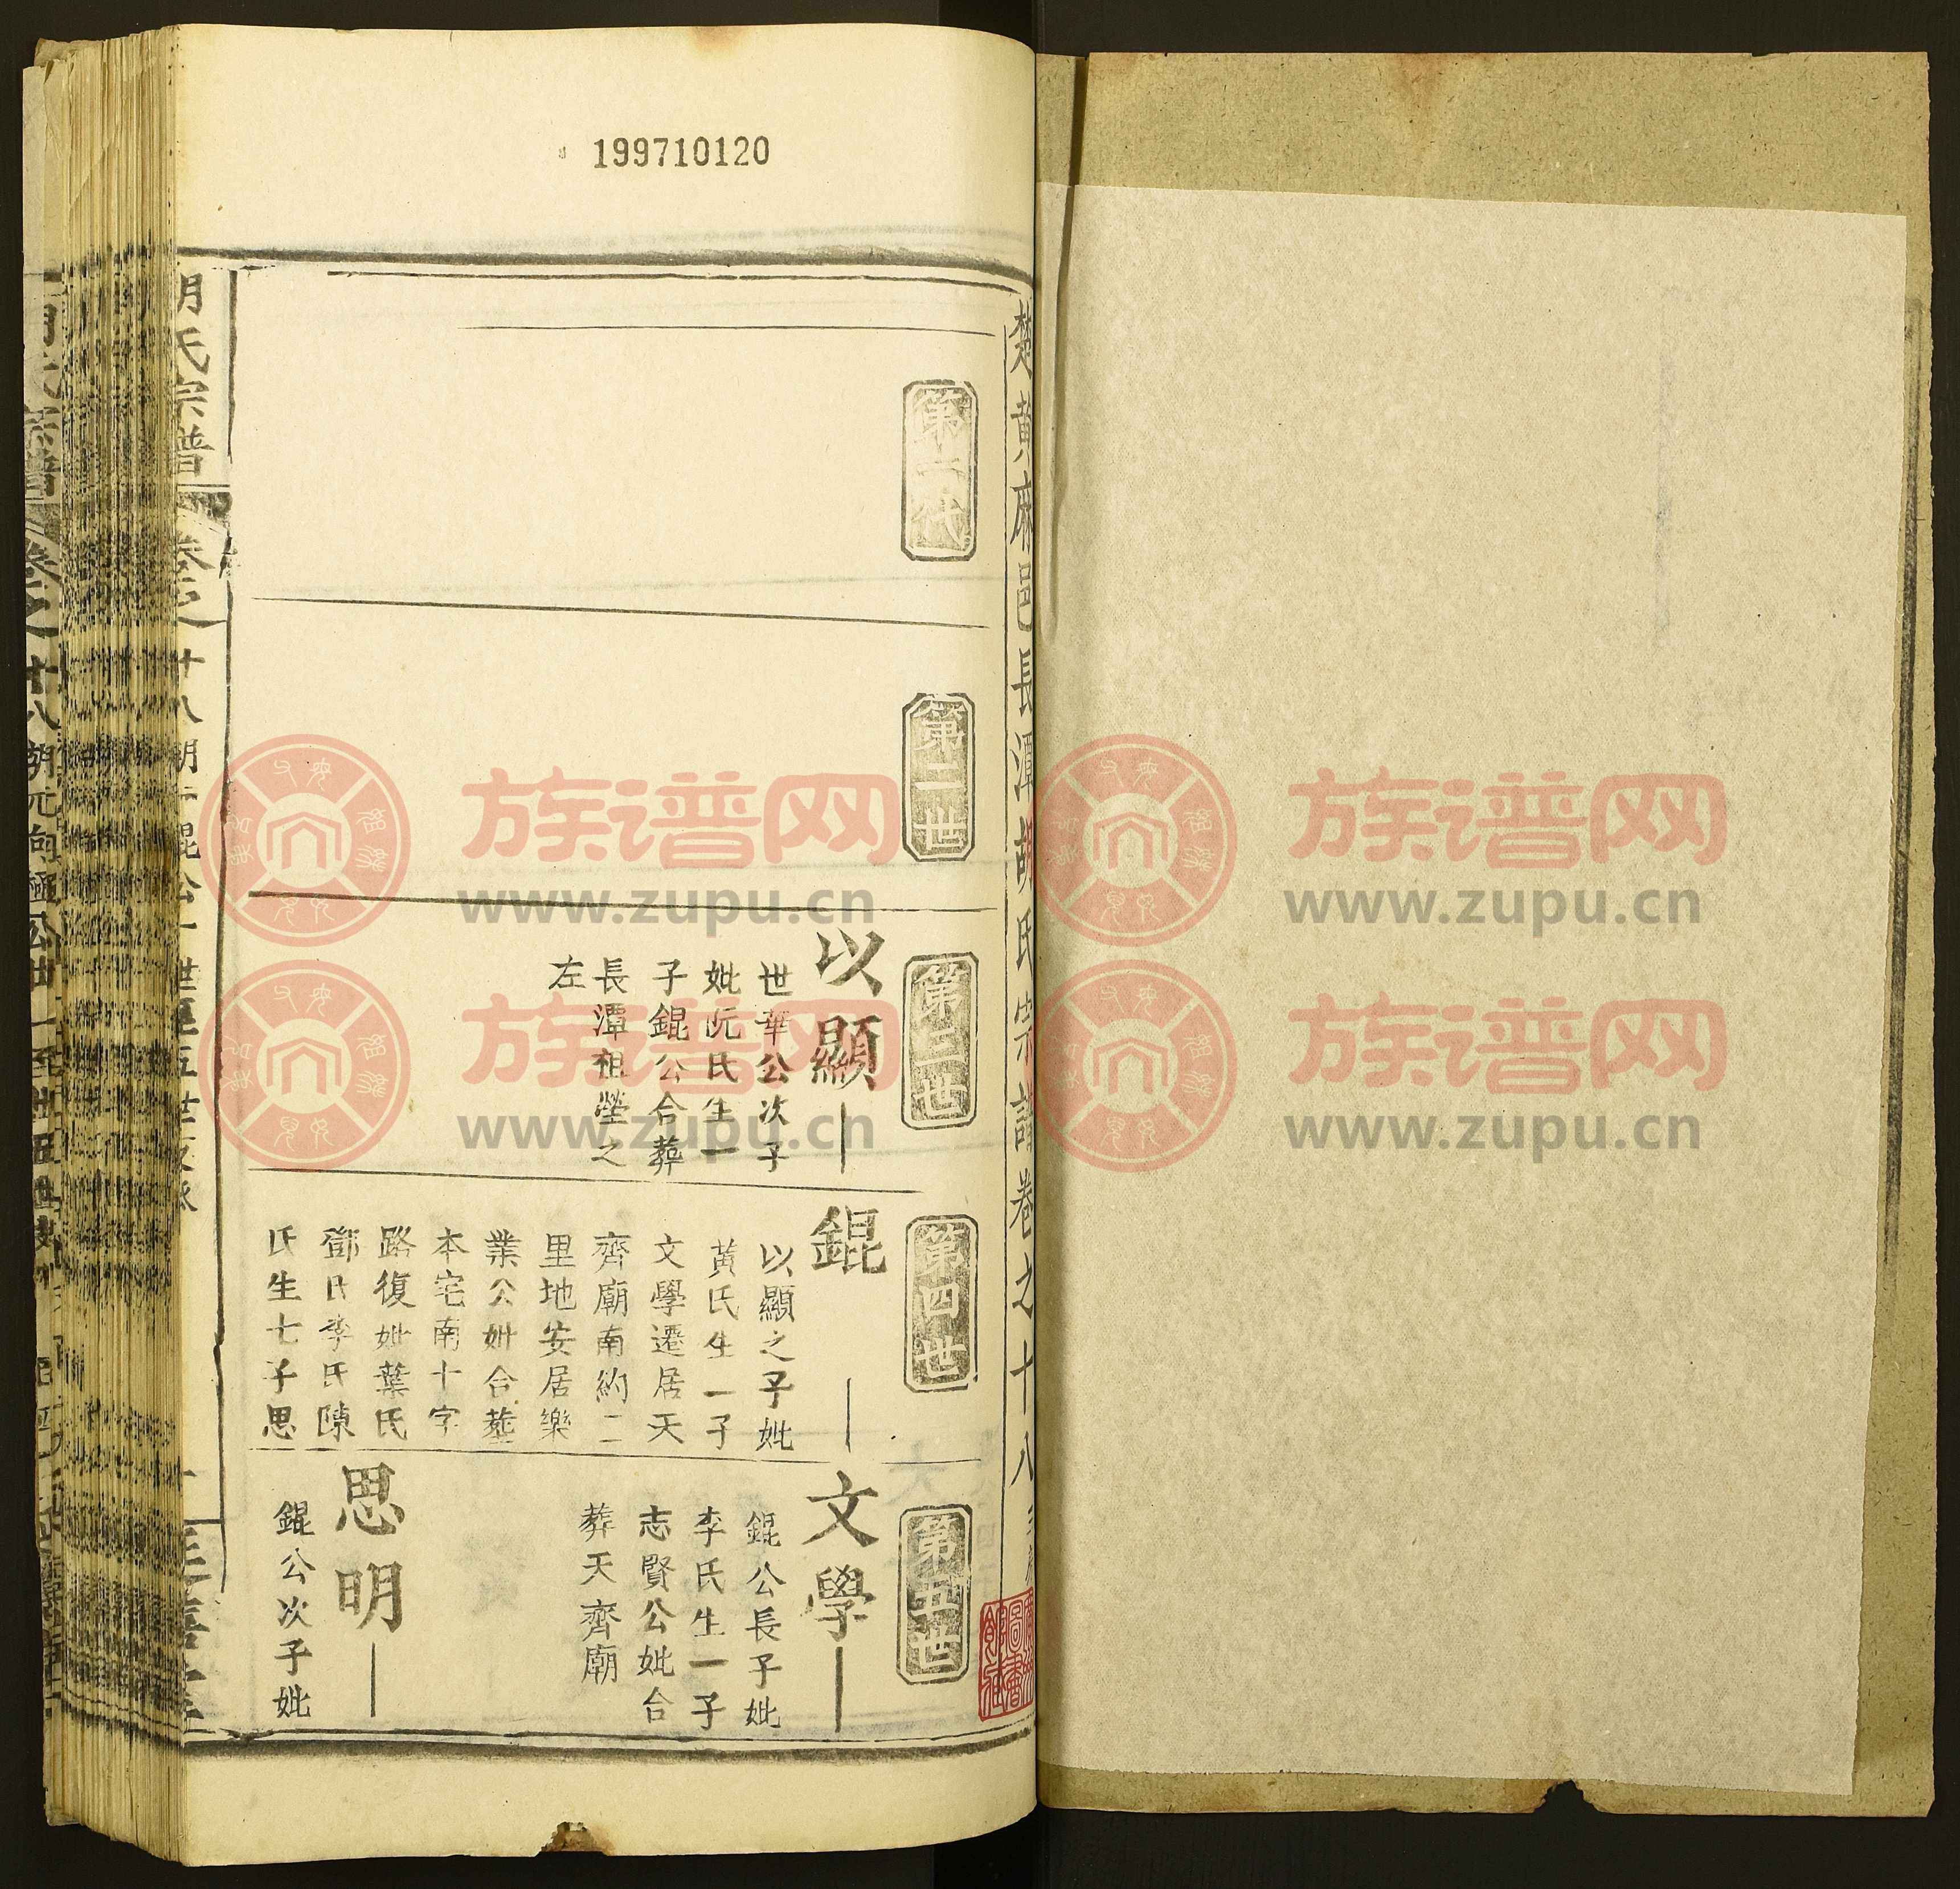 199710120
楚黃麻邑長潭胡氏宗譜卷之十八
第一代
第二世
第三世
以顯
世華公次子
妣阮氏生一
子錕公合葬
長潭祖塋之
左
第四世
錕
以顯之子妣
黃氏生一子
文學遷居天
齊廟南約二
里地安居樂
業公妣合塟
本宅南十字
路復妣葉氏
鄧氏李氏陳
氏生七子思
第五世
文學
錕公長子妣
李氏生一子
志賢公妣合
葬天齊廟
思明
錕公次子妣
胡氏宗譜
卷之十八
族谱网
www.zupu.cn
族谱网
www.zupu.cn
族谱网
www.zupu.cn
族谱网
www.zupu.cn